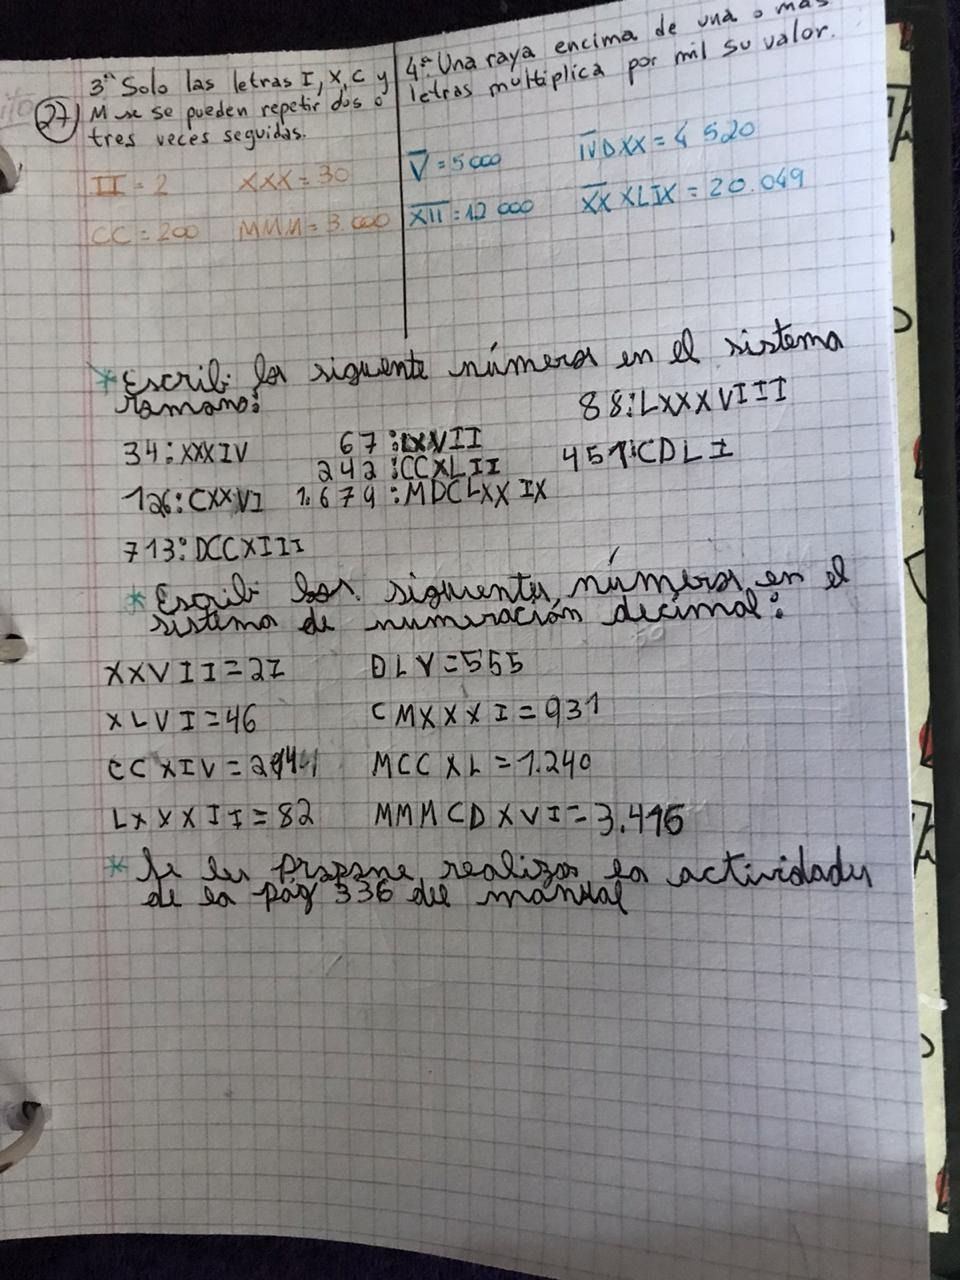 3ª Solo las letras I, X, C y
27) M se se pueden repetir dos o
tres veces seguidas.
II = 2 XXX = 30
CC = 200 MMM = 3 000
4ª. Una raya encima de una o más
letras multiplica por mil su valor.
V̅ = 5 000 I̅V̅DXX = 4 520
X̅I̅I̅ = 12 000 X̅X̅ XLIX = 20.049
* Escribí los siguente números en el sistema
romano:
88: LXXXVIII
34: XXXIV 67: LXVII
242: CCXLII 451: CDLI
126: CXXVI 1.679: MDCLXXIX
713: DCCXIII
* Escribí los siguientes números en el
sistema de numeración decimal:
XXVII = 27 DLV = 555
XLVI = 46 CMXXXI = 931
CCXIV = MCCXL = 1.240
LXXXII = 82 MMMCDXVI = 3.416
* Se les propone realizar la actividades
de la pág 336 del manual